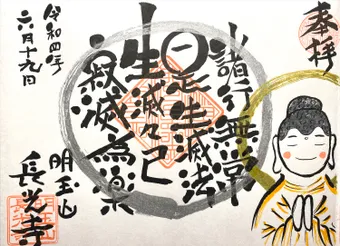 奉拝
諸行無常
是生滅法
生滅々已
寂滅為楽
令和四年
六月十九日
明王山
長光寺